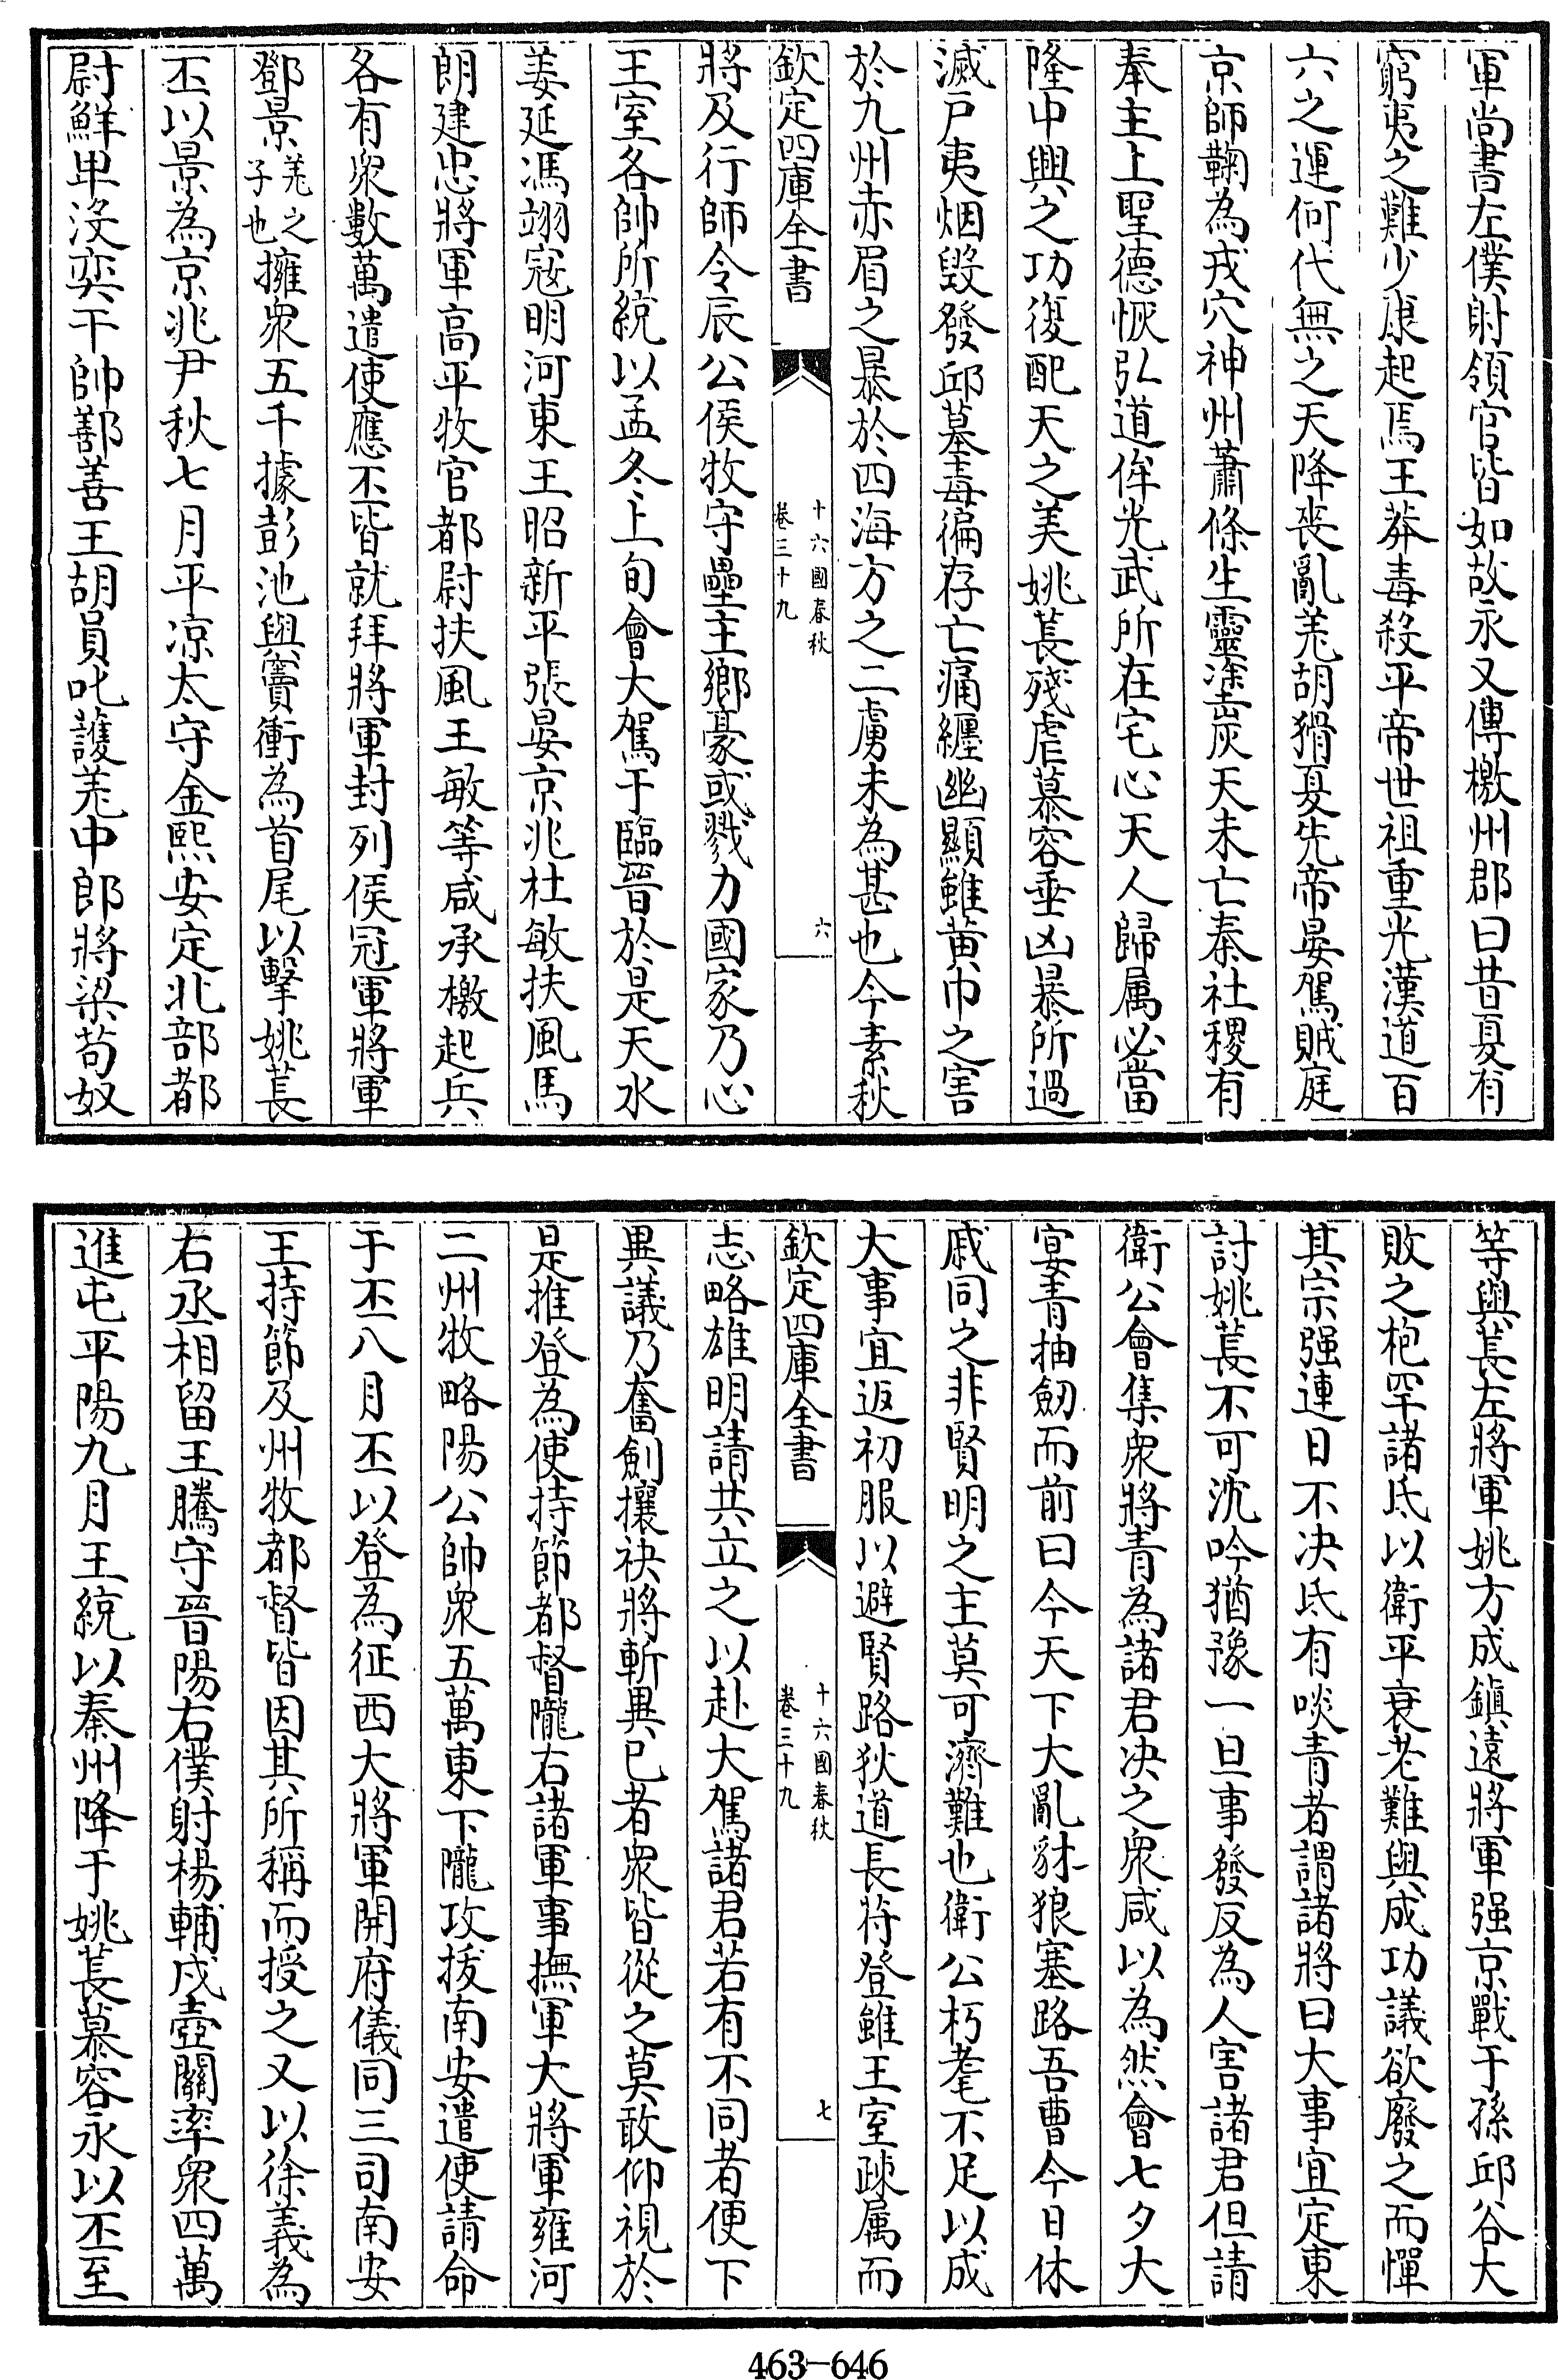 軍尚書左僕射領官皆如故永又傳檄州郡曰昔夏有
窮夷之難少康起焉王莽毒殺平帝世祖重光漢道百
六之運何代無之天降喪亂羌胡猾夏先帝晏駕賊庭
京師鞠為戎穴神州蕭條生靈塗炭天未亡秦社稷有
奉主上聖德恢弘道侔光武所在宅心天人歸属必當
隆中興之功復配天之美姚萇殘虐慕容垂凶暴所過
滅戸夷烟毀發邱墓毒徧存亡痛纏幽顯雖黄巾之害
於九州赤眉之暴於四海方之二虜未為甚也今素秋
欽定四庫全書
十六國春秋
卷三十九
六
將及行師令辰公侯牧守壘主鄉豪或戮力國家乃心
王室各帥所統以孟冬上旬會大駕于臨晉於是天水
姜延馮翊寇明河東王昭新平張晏京兆杜敏扶風馬
朗建忠將軍高平牧官都尉扶風王敏等咸承檄起兵
各有衆數萬遣使應丕皆就拜將軍封列侯冠軍將軍
鄧景羌之子也擁衆五千據彭池與竇衝為首尾以擊姚萇
丕以景為京兆尹秋七月平凉太守金熙安定北部都
尉鮮卑沒奕干帥鄯善王胡員吒護羌中郎將梁苟奴
等與萇左將軍姚方成鎮遠將軍强京戰于孫邱谷大
敗之枹罕諸氐以衛平衰老難與成功議欲廢之而憚
其宗强連日不决氐有啖青者謂諸將曰大事宜定東
討姚萇不可沈吟猶豫一旦事發反為人害諸君但請
衛公會集衆將青為諸君决之衆咸以為然會七夕大
宴青抽劒而前曰今天下大亂豺狼塞路吾曹今日休
戚同之非賢明之主莫可濟難也衛公朽耄不足以成
大事宜返初服以避賢路狄道長苻登雖王室疎属而
欽定四庫全書
十六國春秋
卷三十九
七
志略雄明請共立之以赴大駕諸君若有不同者便下
異議乃奮劍攘袂將斬異已者衆皆從之莫敢仰視於
是推登為使持節都督隴右諸軍事撫軍大將軍雍河
二州牧略陽公帥衆五萬東下隴攻拔南安遣使請命
于丕八月丕以登為征西大將軍開府儀同三司南安
王持節及州牧都督皆因其所稱而授之又以徐義為
右丞相留王騰守晉陽右僕射楊輔戍壺關率衆四萬
進屯平陽九月王統以秦州降于姚萇慕容永以丕至
463-646